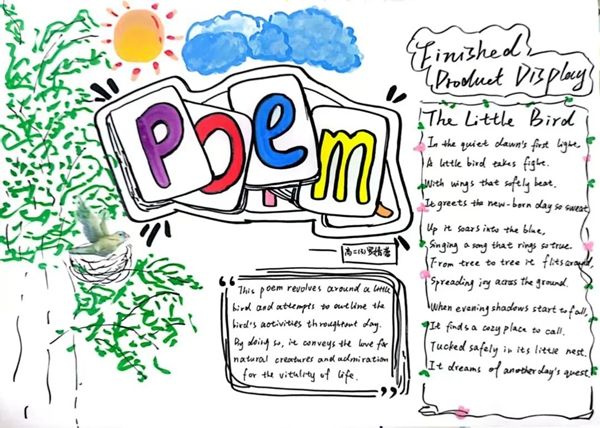 Poem
Finished
Product Display
The Little Bird
In the quiet dawn's first light
A little bird takes fight.
With wings that softly beat.
It greets the new-born day so sweat
Up it soars into the blue,
Singing a song that rings so true.
From tree to tree it flits around,
Spreading joy across the ground.
When evening shadows start to fall,
It finds a cozy place to call.
Tucked safely in its little nest.
It dreams of another day's quest
高二
This poem revolves around a little
bird and attempts to outline the
bird's activities throughtout day.
By doing so, it conveys the love for
natural creatures and admiration
for the vitality of life.